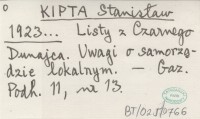 KIPTA Stanisław
1923... Listy z Czarnego
Dunajca. Uwagi o samorzą-
dzie lokalnym. — Gaz.
Podh. 11, nr 13.
BT/025/0766